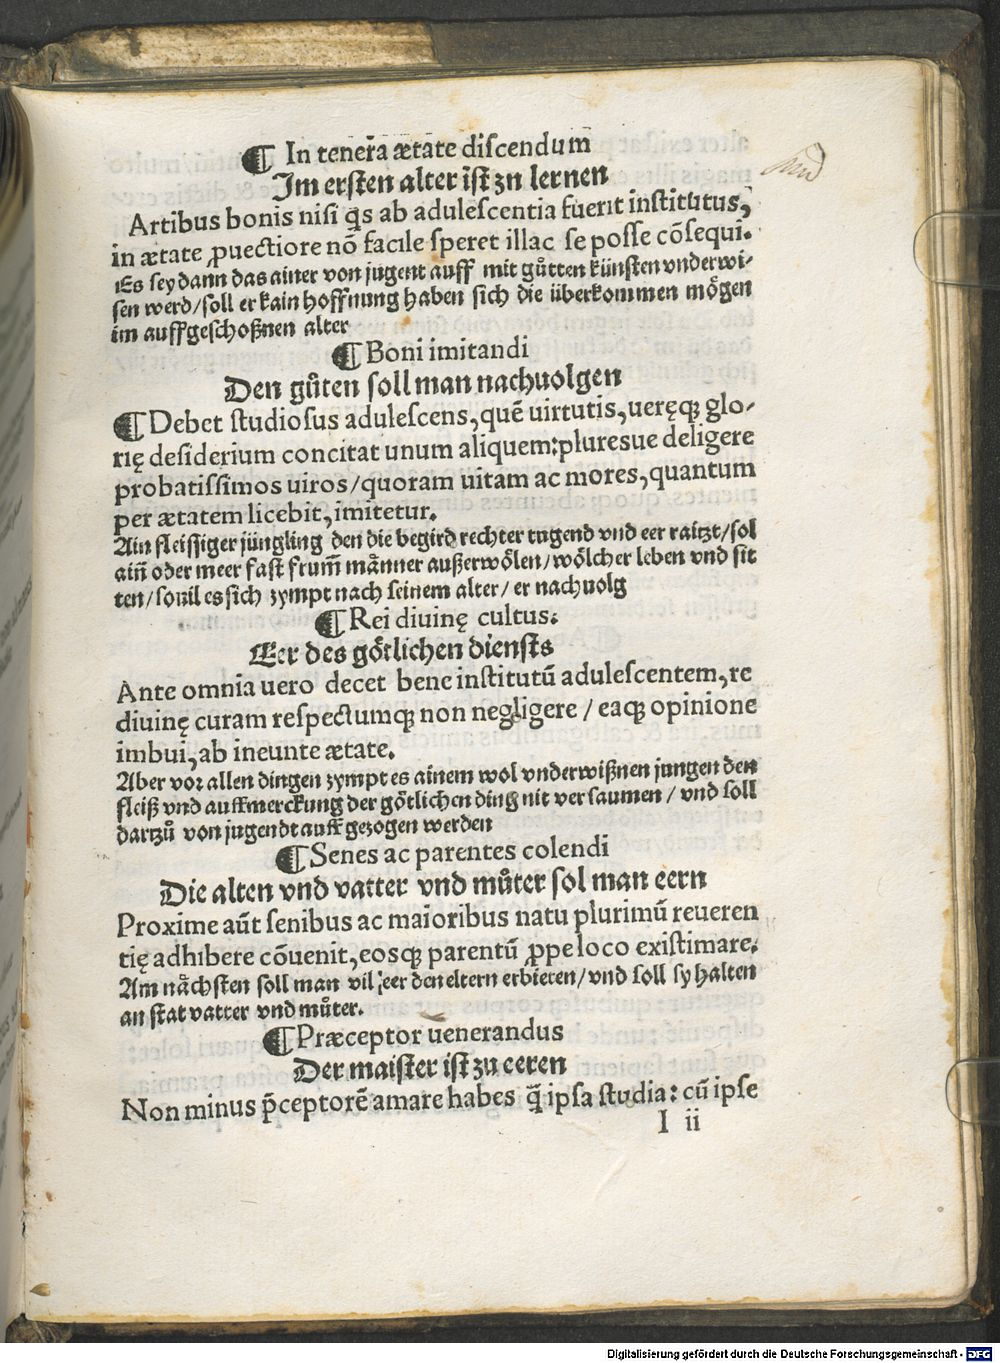 ¶ In tenera ætate discendum
Im ersten alter ist zu lernen
Artibus bonis nisi q̃s ab adulescentia fuerit institutus,
in ætate ꝓuectiore nõ facile speret illac se posse cõsequi.
Es sey dann das ainer von jugent auff mit gůtten künsten vnderwi-
sen werd/soll er kain hoffnung haben sich die überkommen mögen
im auffgeschoßnen alter
¶ Boni imitandi
Den gůten soll man nachuolgen
¶ Debet studiosus adulescens, quẽ uirtutis, ueręqꝫ glo-
rię desiderium concitat unum aliquem: pluresue deligere
probatissimos uiros/quoram uitam ac mores, quantum
per ætatem licebit, imitetur.
Ain fleissiger jüngling den die begird rechter tugend vnd eer raitzt/sol
ain̄ oder meer fast frum̄ männer außerwölen/wölcher leben vnd sit
ten/souil es sich zympt nach seinem alter/er nachuolg
¶ Rei diuinę cultus.
Eer des götlichen diensts
Ante omnia uero decet bene institutũ adulescentem, re
diuinę curam respectumqꝫ non negligere / eaqꝫ opinione
imbui, ab ineunte ætate.
Aber vor allen dingen zympt es ainem wol vnderwißnen jungen den
fleiß vnd auffmerckung der götlichen ding nit versaumen / vnd soll
dartzů von jugendt auff gezogen werden
¶ Senes ac parentes colendi
Die alten vnd vatter vnd můter sol man eern
Proxime aũt senibus ac maioribus natu plurimũ reueren
tię adhibere cõuenit, eosqꝫ parentũ ꝓpe loco existimare.
Am nächsten soll man vil eer den eltern erbieten/vnd soll sy halten
an stat vatter vnd můter.
¶ Præceptor uenerandus
Der maister ist zu eeren
Non minus p̃ceptorẽ amare habes q̃ ipsa studia: cũ ipse
I ii
Digitalisierung gefördert durch die Deutsche Forschungsgemeinschaft - DFG